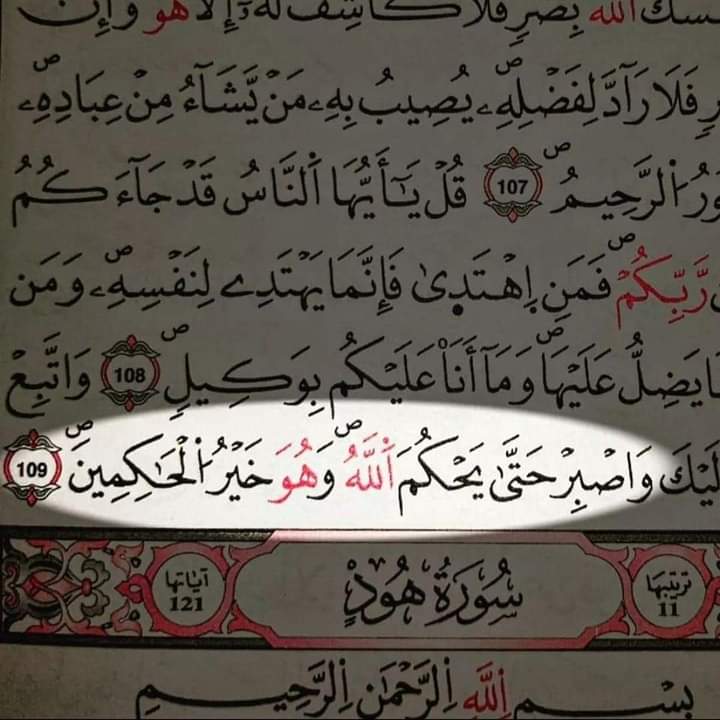 بِضُرٍّ فَلَا كَاشِفَ لَهُۥٓ إِلَّا هُوَ وَإِنْ
فَلَا رَآدَّ لِفَضْلِهِۦ ۖ يُصِيبُ بِهِۦ مَنْ يَّشَآءُ مِنْ عِبَادِهِۦ ۖ
اَ۬لرَّحِيمُ ۖ 107 قُلْ يَٰٓأَيُّهَا اَ۬لنَّاسُ قَدْ جَآءَكُمُ
رَّبِّكُمْ ۖ فَمَنِ اِ۪هْتَد۪ىٰ فَإِنَّمَا يَهْتَدِے لِنَفْسِهِۦ ۖ وَمَن
يَضِلُّ عَلَيْهَا ۖ وَمَآ أَنَا۠ عَلَيْكُم بِوَكِيلٍ ۖ 108 وَاتَّبِعْ
وَاصْبِرْ حَتَّىٰ يَحْكُمَ اَ۬للَّهُ ۖ وَهُوَ خَيْرُ اُ۬لْحَٰكِمِينَ ۖ 109
ترتيبها 11 سُورَةُ هُودٍ آياتها 121
بِسْمِ اِ۬للَّهِ اِ۬لرَّحْمَٰنِ اِ۬لرَّحِيمِ